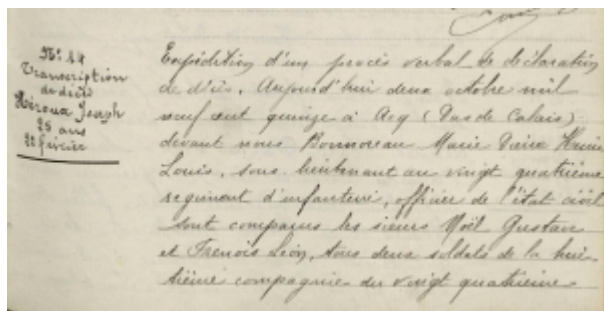 N° 14
Transcription
de décès
Héroux Joseph
25 ans
22 février
Expédition d'un procès verbal de déclaration
de décès. Aujourd'hui deux octobre mil
neuf cent quinze à Acq (Pas de Calais)
devant nous Bonnoreau Marie Pierre Henri
Louis, sous lieutenant au vingt quatrième
régiment d'infanterie, officier de l'état civil
sont comparus les sieurs Noël Gustave
et Frenois Léon, tous deux soldats de la hui-
tième compagnie du vingt quatrième